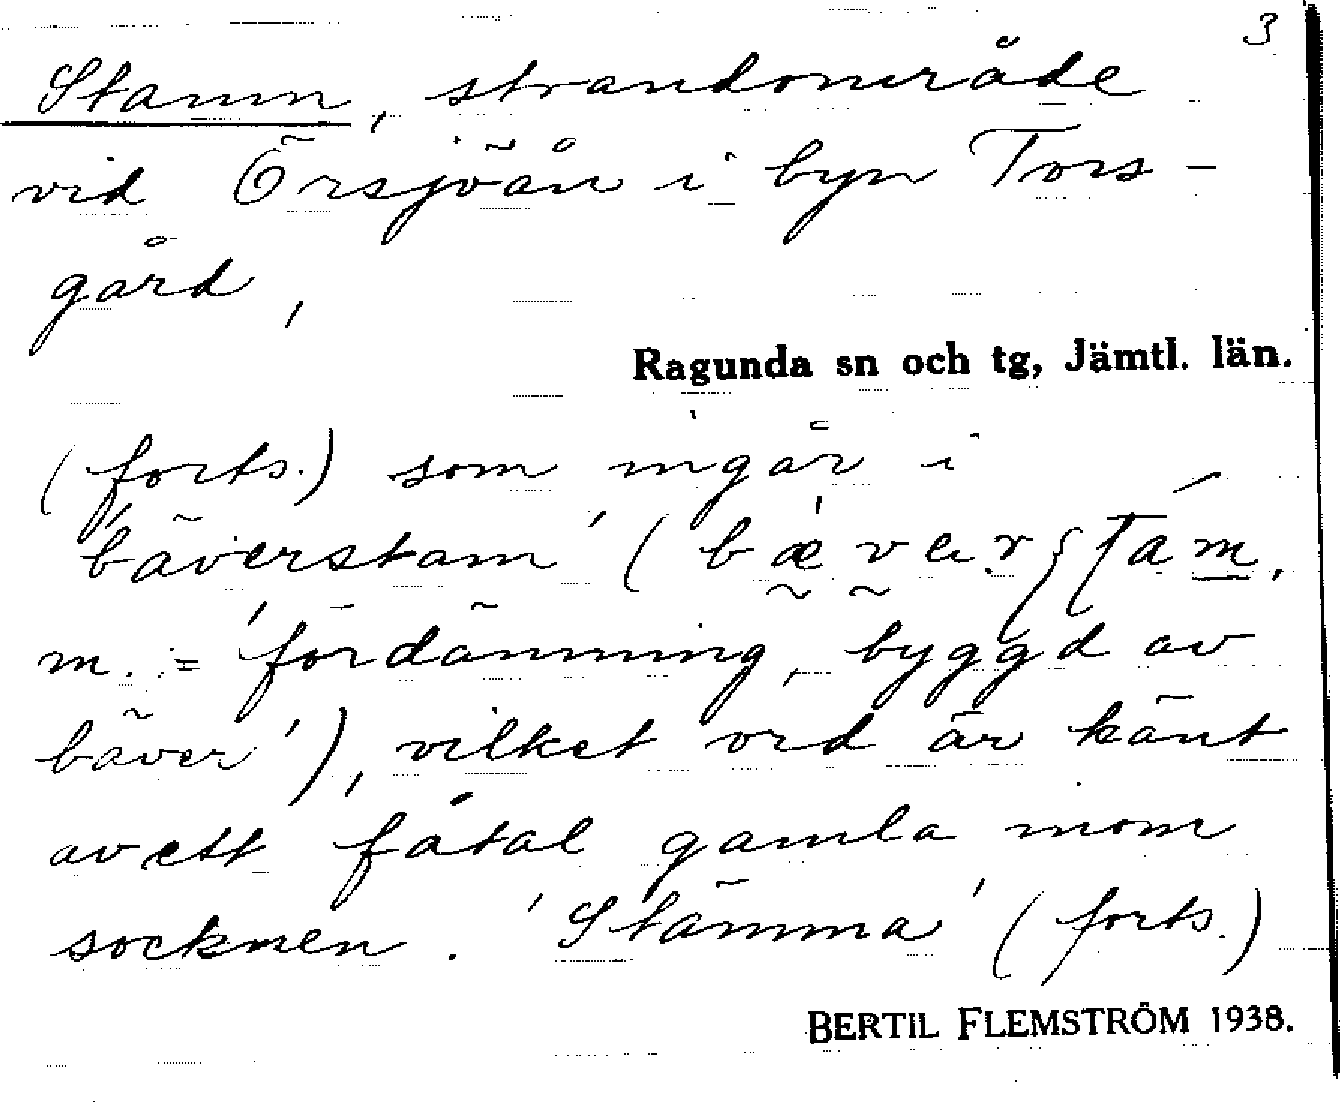 3
Stamn, strandområde
vid Örsjöån i byn Tors-
gård,
Ragunda sn och tg, Jämtl. län.
(forts.) som ingår i
'bäverstam' (
m. = 'fördämning, byggd av
bäver'), vilket ord är känt
av ett fåtal gamla inom
socknen. 'Stämma' (forts.)
BERTIL FLEMSTRÖM 1938.